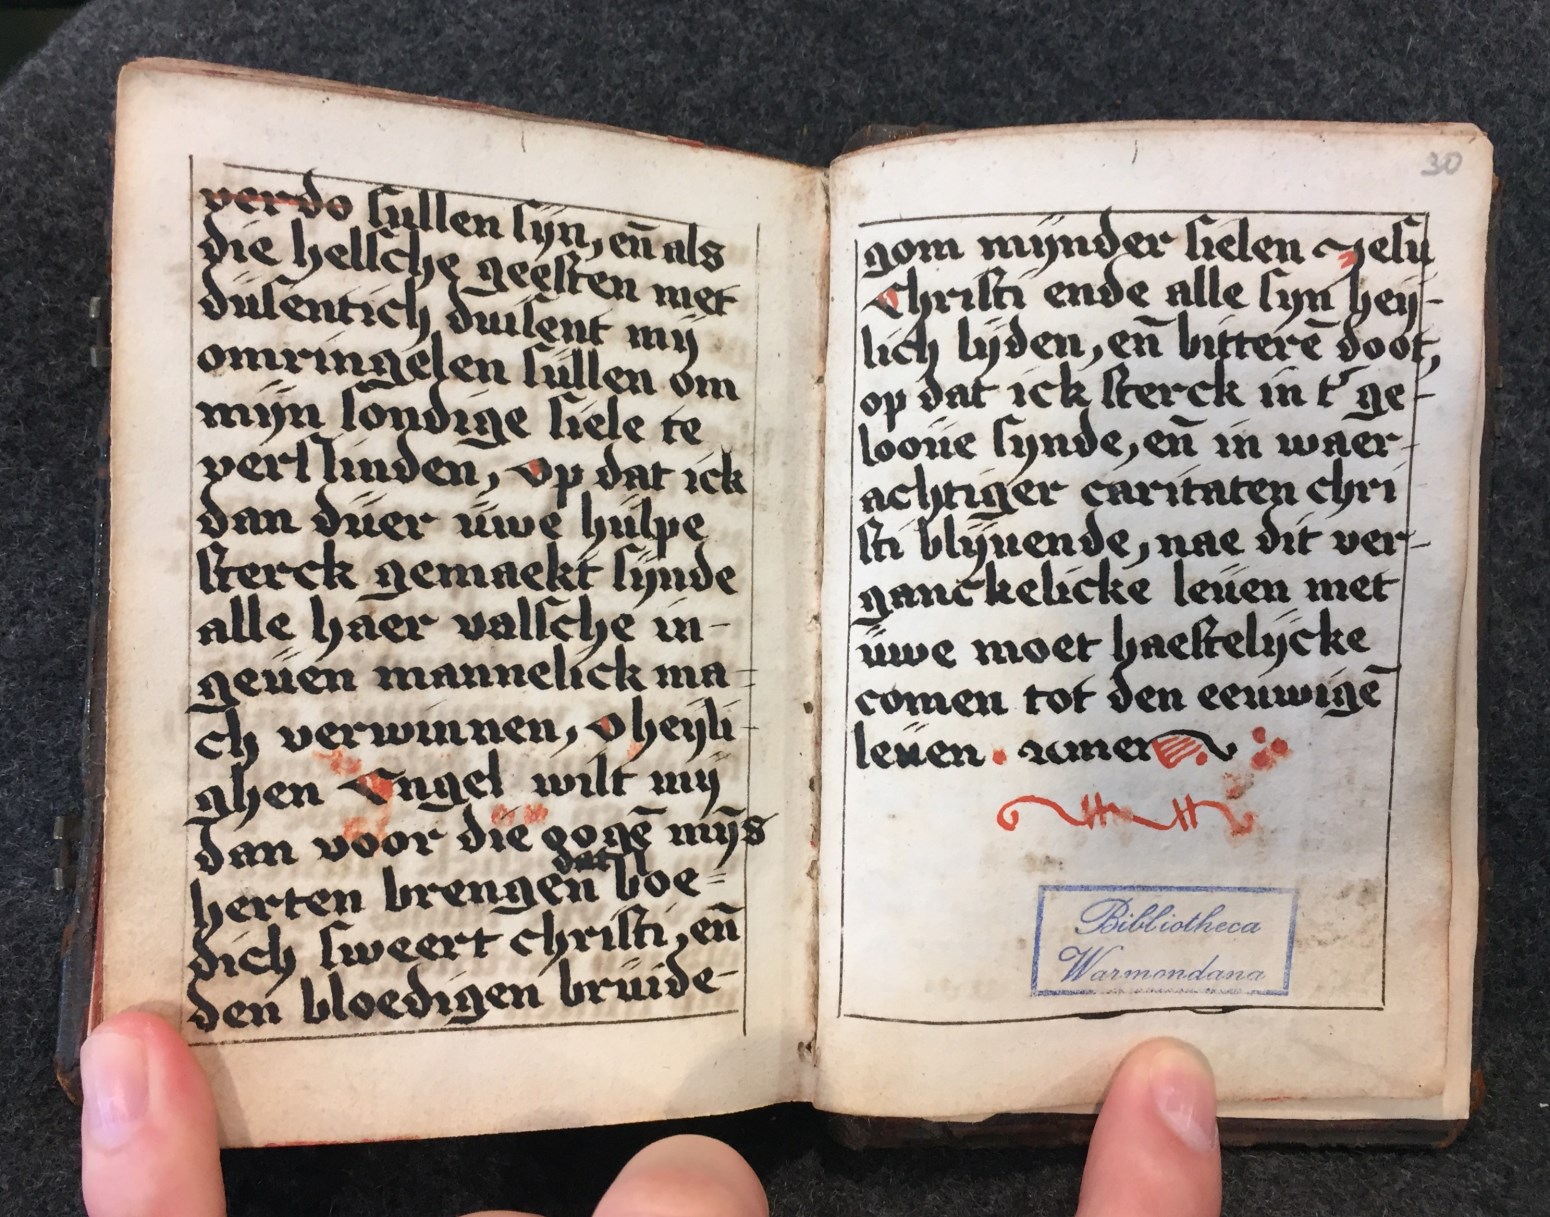 verdo sullen sijn, en̄ als
die helsche geesten met
dusentich duisent mij
omringelen sullen om
mijn sondige siele te
verslinden, op dat ick
dan duer uwe hulpe
sterck gemaekt sijnde
alle haer valsche in-
geuen mannelick ma-
ch verwinnen, o heyli-
ghen Engel wilt mij
dan voor die oogē mijs
herten brengen dat bloe-
dich sweert christi, en̄
den bloedigen bruide-
30
gom mijnder sielen Jesu
Christi ende alle sijn heij-
lich lijden, en̄ bitterē doot,
op dat ick sterck in t' ge-
looue sijnde, en̄ in waer-
achtiger caritaten chri
sti blijuende, nae dit ver-
ganckelicke leuen met
uwe moet haestelijcke
comen tot den eeuwigē
leuen. amen
Bibliotheca
Warmondana